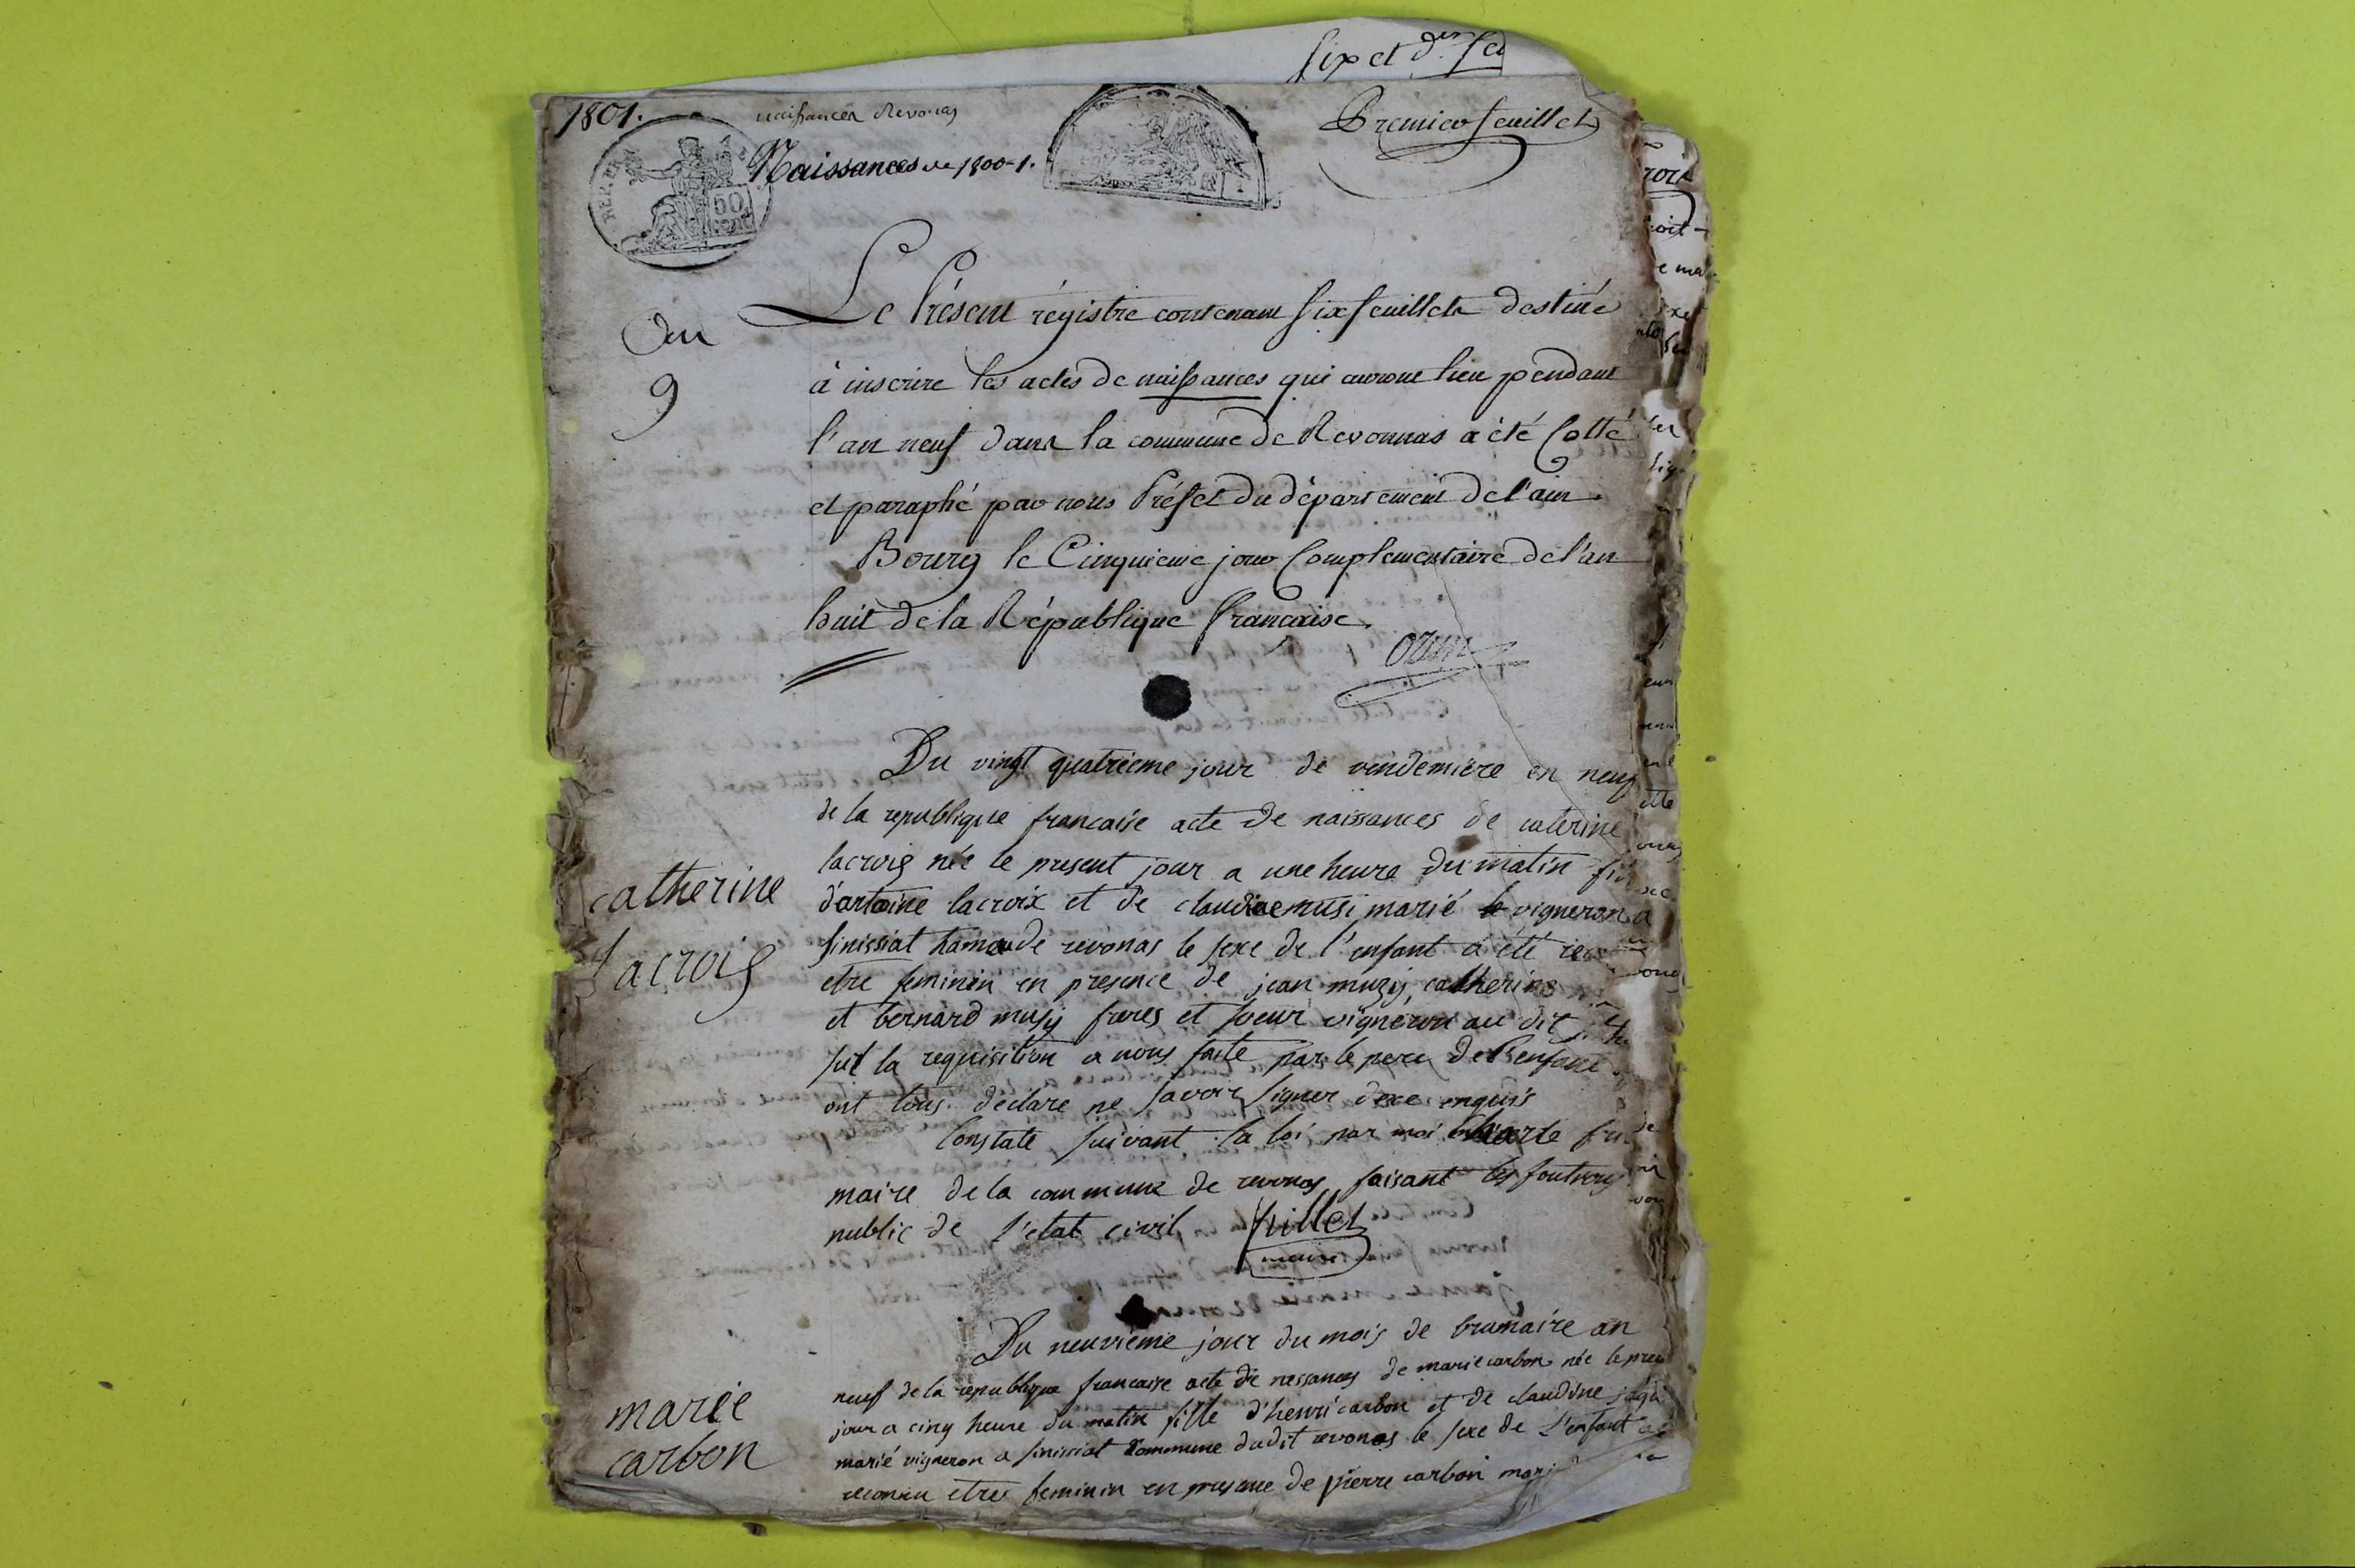 six et d.
1801.
naissances Revonas
Premier feuillet
Naissances de 1800-1.
REP. FRA
50
An
9
Le Présent régistre contenant six feuillets destiné
à inscrire les actes de naissances qui auront lieu pendant
l'an neuf dans la commune de Revonnas a été Cotté
et paraphé par nous Préfet du département de l'ain
Bourg le Cinquieme jour Complementaire de l'an
huit de la République française.
Du vingt quatrieme jour de vendemiere en neuf
de la republique francaise acte de naissances de caterine
lacroix née le present jour a une heure du matin
d'antoine lacroix et de claudine musi marié vigneron a
sinissiat hamau de revonas le sexe de l'enfant a été
etre feminin en presence de jean muzy, catherine
et bernard musy freres et soeur vigneron au dit
sul la requisition a nous faite par le pere de l'enfant
ont tous declare ne savoir signer dexe enquis
Constate suivant la loi par moi
maire de la commune de revonas faisant les
public de l'etat civil
maire
catherine
lacroix
Du neuvieme jour du mois de brumaire an
neuf de la republique francaise acte de nessances de marie carbon née le
jour a cinq heure du matin fille d'henri carbon et de claudine
marié vigneron a sinissiat commune dudit revonas le sexe de l'enfant
reconnu etres feminin en presance de pierre carbon
marie
carbon